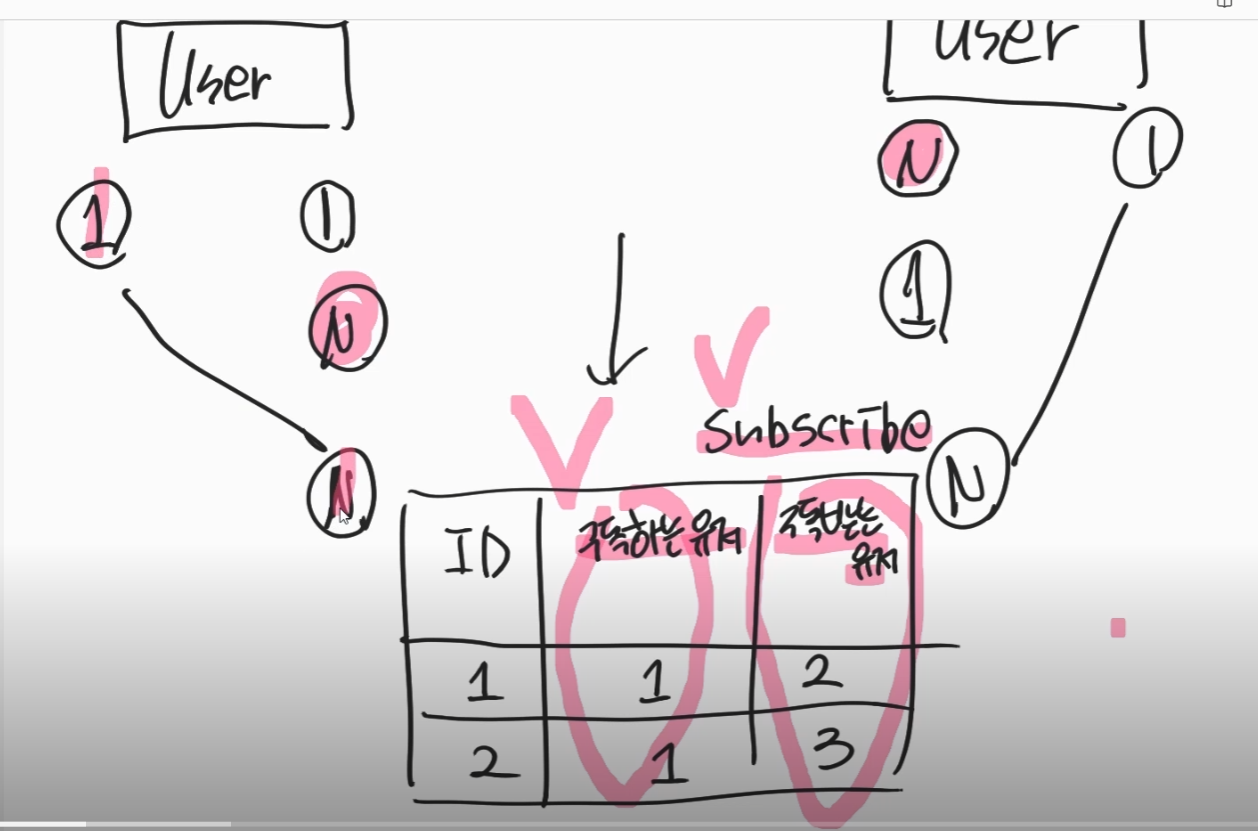 User
User
1
1
N
1
N
1
N
N
Subscribe
ID
구독하는 유저
구독받는
유저
1
1
2
2
1
3